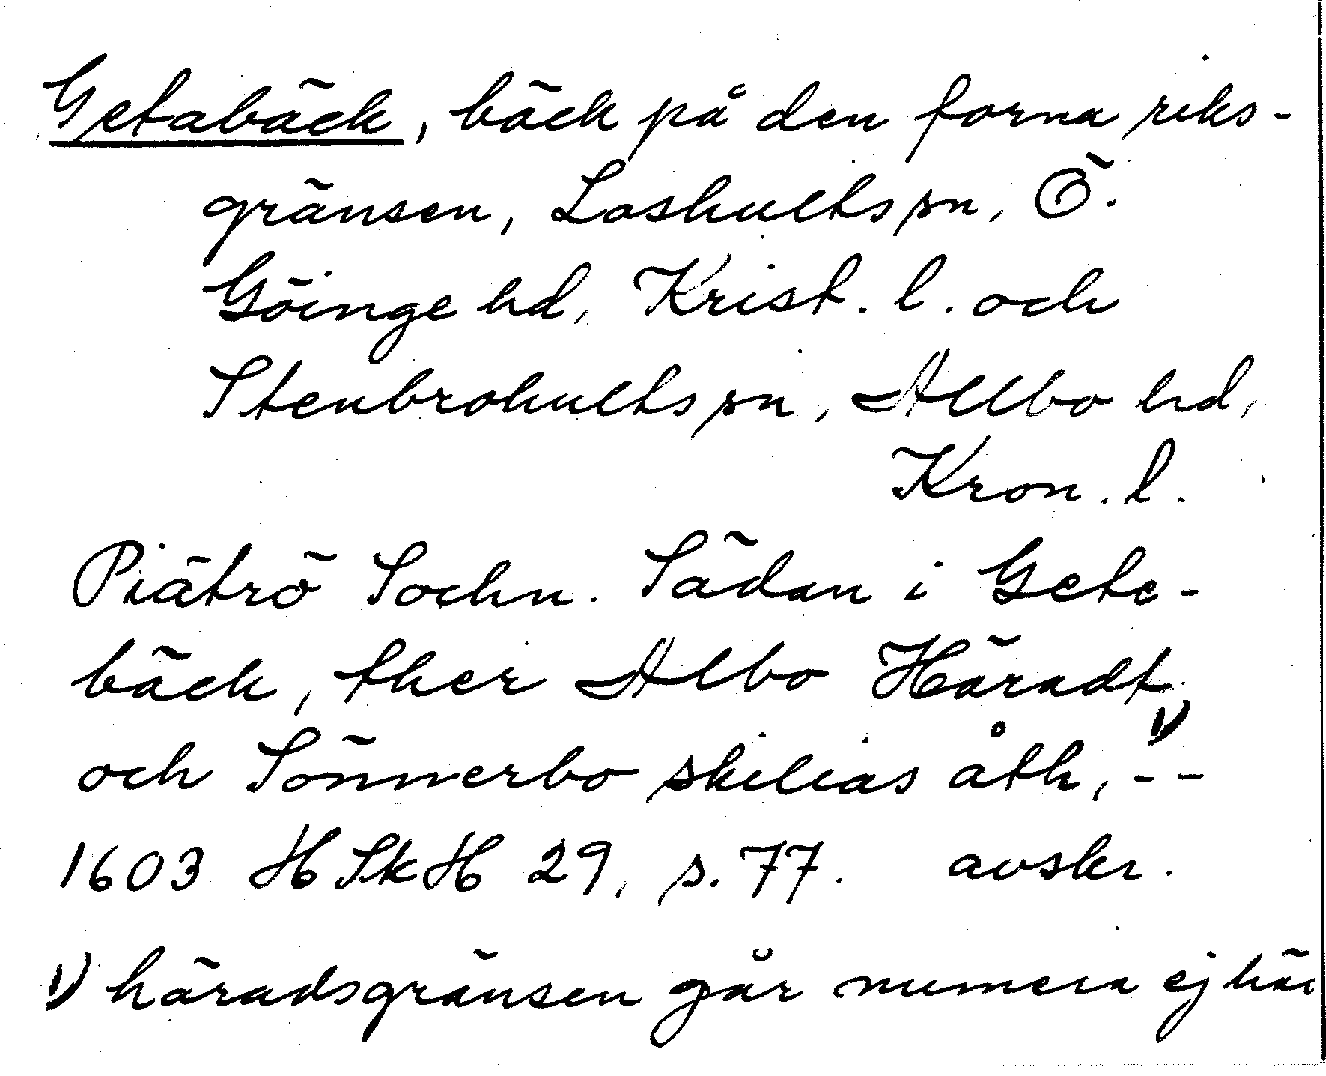 Getabäck, bäck på den forna riks-
gränsen, Loshults sn, Ö.
Göinge hd, Krist. l. och
Stenbrohults sn, Allbo hd,
Kron. l.
Piätrö Sochn. Sädan i Gete-
bäck, ther Albo Häradt
och Sönnerbo skilias åth, 1) --
1603 HSkH 29, s. 77. avskr.
1) häradsgränsen går numera ej här